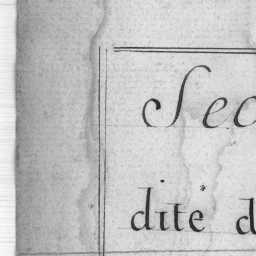 Sec
dite d